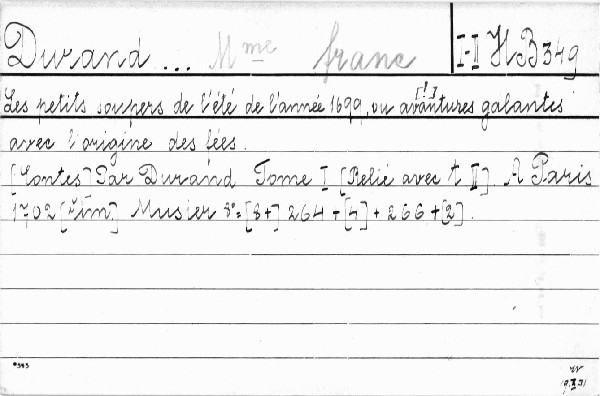 Durand ... Mme franc I-II HB 349
Les petits soupers de l'été de l'année 1699, ou avantures [!] galantes
avec l'origine des fées.
[Contes] Par Durand Tome I [Relié avec t II]. A Paris
1702 [řím.] Musier 8°= [8+] 264 + [4] + 266 + [2].